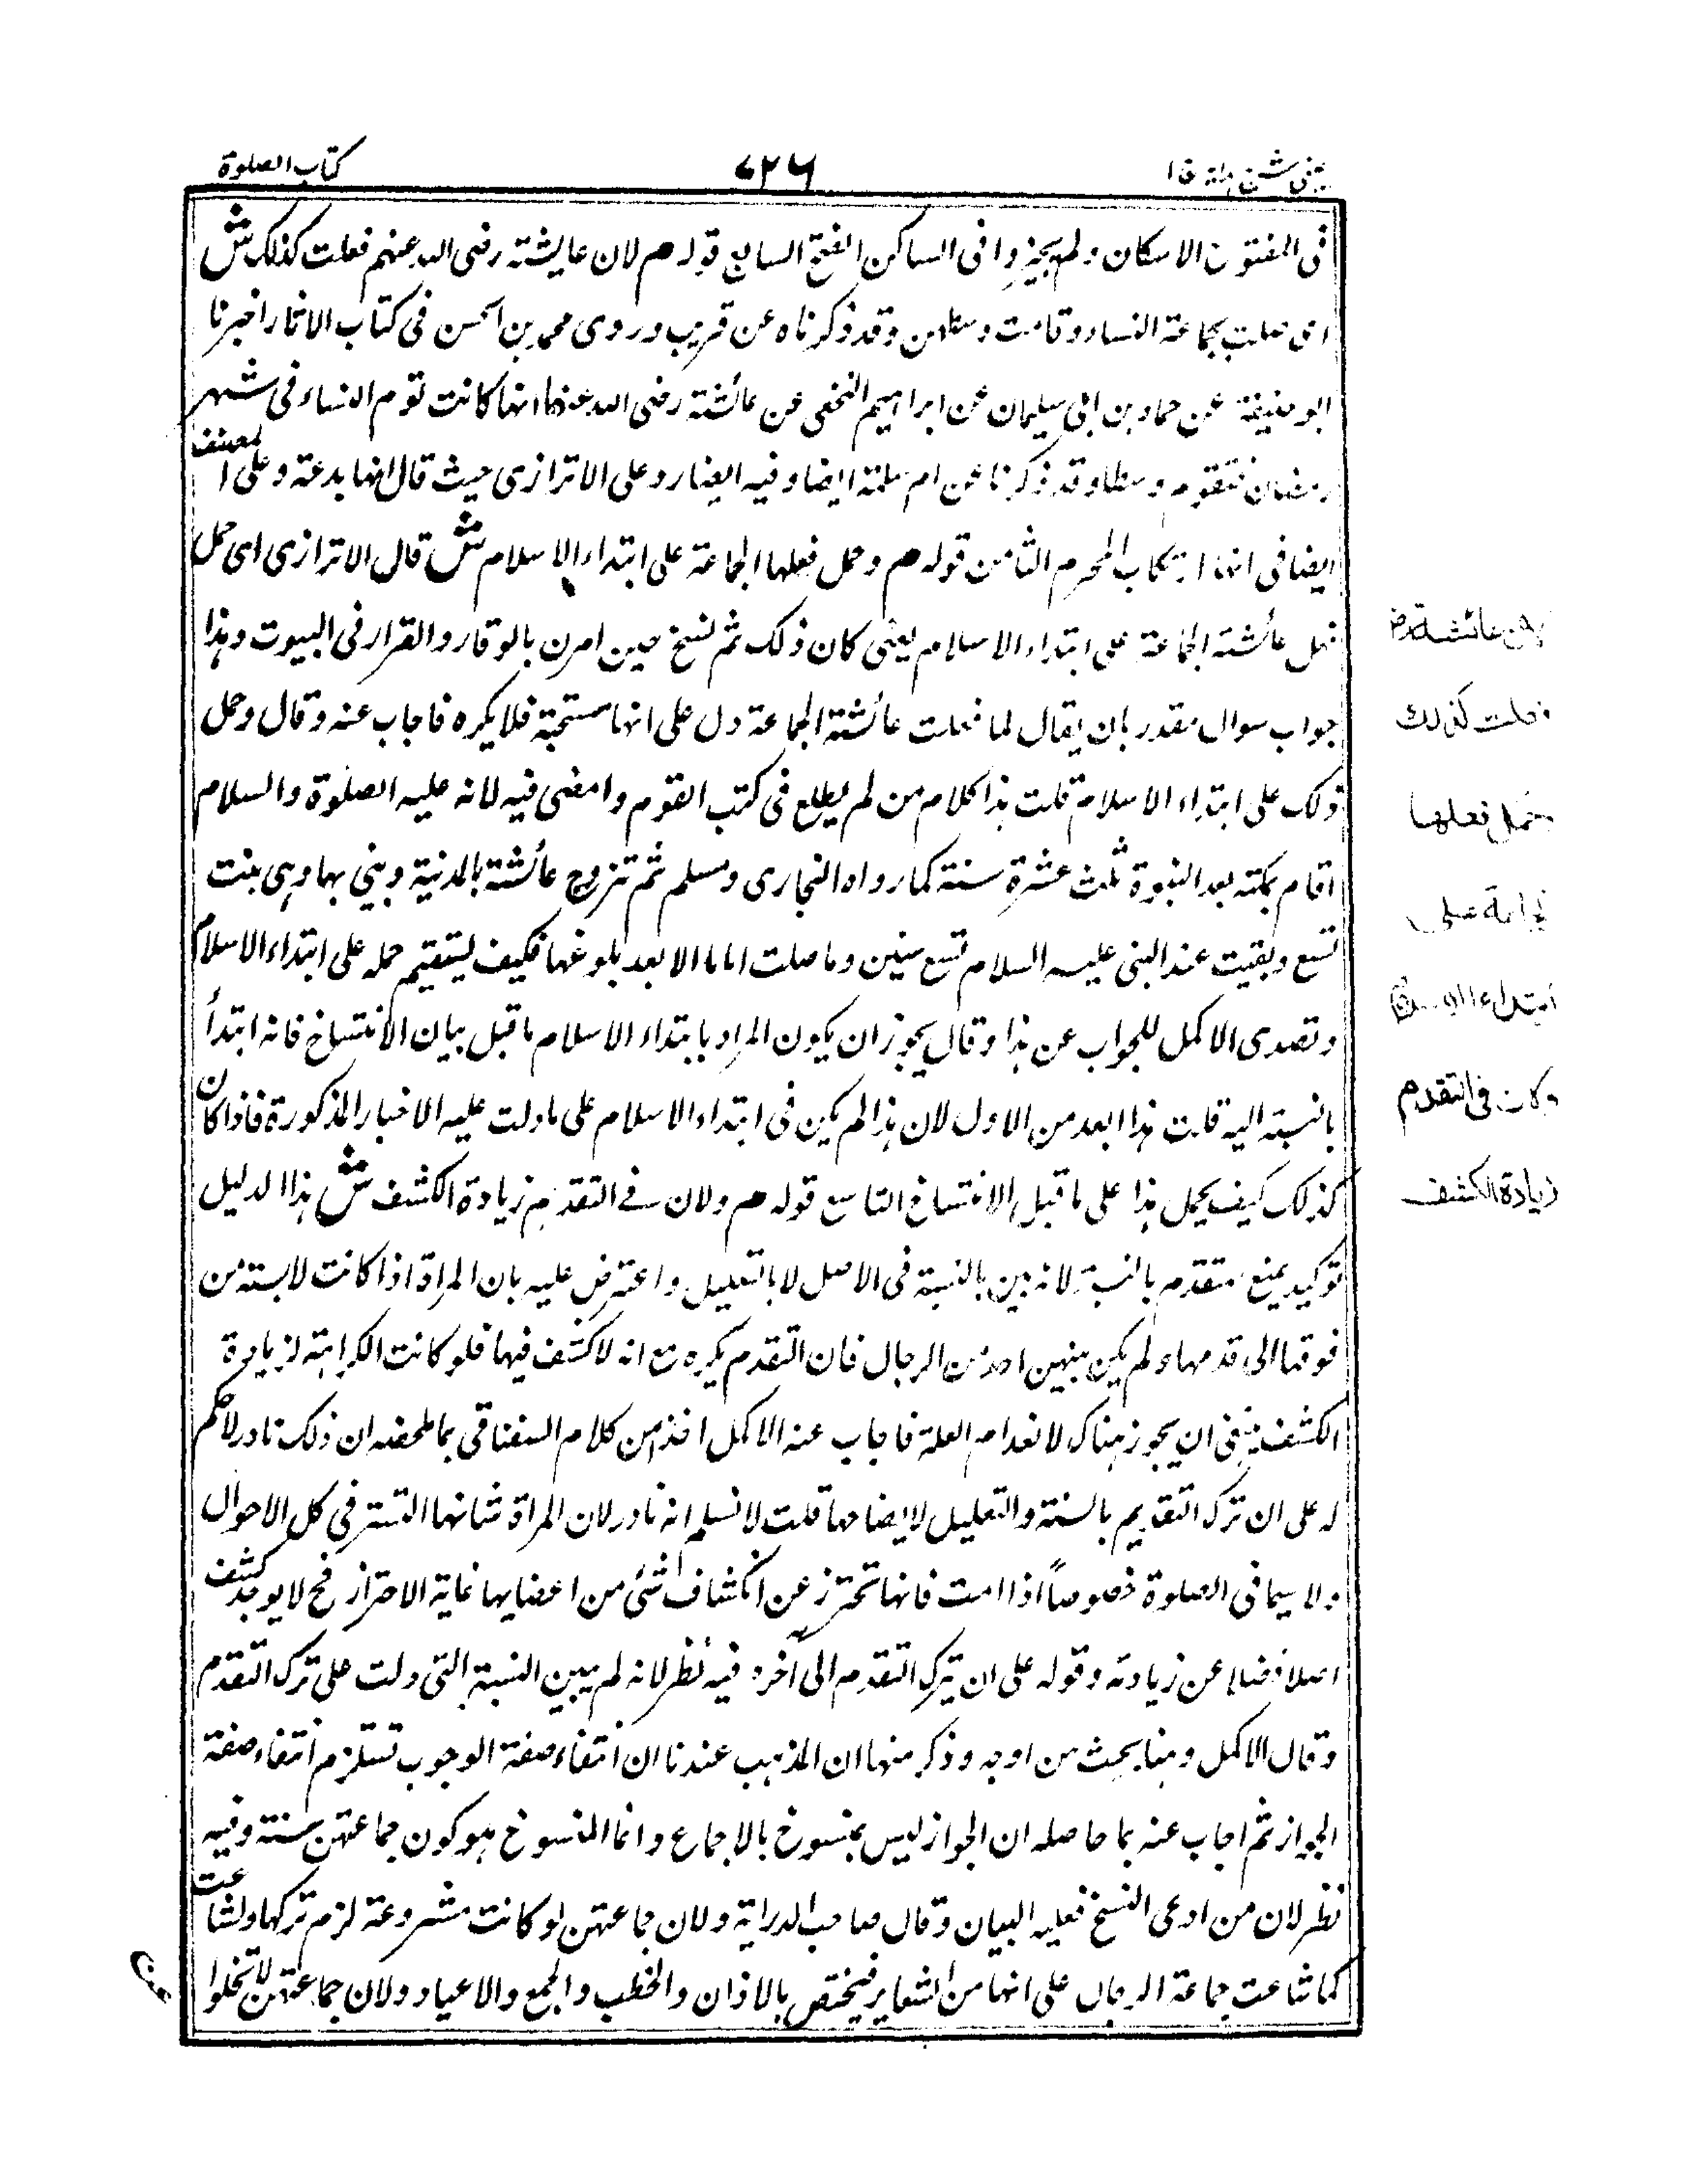 كتاب الصلوة
٧٢٦
عينى شرح هداية ج ١
فى المفتوح الاسكان ولم يجيزوا فى الساكن الفتح السابع قوله م لان عايشة رضى الله عنهم فعلت كذلك ش
اى صلت بجماعة النساء وقامت وسطهن وقد ذكرناه عن قريب وروى محمد بن الحسن فى كتاب الاثار اخبرنا
ابو حنيفة عن حماد بن ابى سليمان عن ابراهيم النخعى عن عائشة رضى الله عنها انها كانت تؤم النساء فى شهر
رمضان فتقوم وسطا وقد ذكرنا عن ام سلمة ايضا وفيه ايضا رد على الاترازى حيث قال انها بدعة وعلى المصنف
ايضا فى انها ارتكاب المحرم الثامن قوله م وحمل فعلها الجماعة على ابتداء الاسلام ش قال الاترازى اى حمل
فعل عائشة الجماعة على ابتداء الاسلام يعنى كان ذلك ثم نسخ حين امرن بالوقار والقرار فى البيوت وهذا
جواب سوال مقدر بان يقال لما فعلت عائشة الجماعة دل على انها مستحبة فلا يكره فاجاب عنه وقال وحمل
ذلك على ابتداء الاسلام قلت هذا كلام من لم يطلع فى كتب القوم وامضى فيه لانه عليه الصلوة والسلام
اقام بمكة بعد النبوة ثلث عشرة سنة كما رواه البخارى ومسلم ثم تزوج عائشة بالمدينة وبنى بها وهى بنت
تسع وبقيت عند النبى عليه السلام تسع سنين وما صلت اماما الا بعد بلوغها فكيف يستقيم حمله على ابتداء الاسلام
وتصدى الاكمل للجواب عن هذا وقال يجوز ان يكون المراد بابتداء الاسلام ما قبل بيان الانتساخ فانه ابتدأ
بالنسبة اليه قلت هذا ابعد من الاول لان هذا لم يكن فى ابتداء الاسلام على ما دلت عليه الاخبار المذكورة فاذا كان
كذلك كيف يحمل هذا على ما قبل الانتساخ التاسع قوله م ولان فى التقدم زيادة الكشف ش هذا الدليل
توكيد يمنع متقدم بالنسبة لانه بين بالنسبة فى الاصل لا بالتعليل واعترض عليه بان المراة اذا كانت لابسته من
فوقها الى قدمها ولم يكن بينهن احد من الرجال فان التقدم يكره مع انه لا كشف فيها فلو كانت الكراهة لزيادة
الكشف ينبغى ان يجوز هناك لانعدام العلة فاجاب عنه الاكمل اخذ من كلام السغناقى بما ملخصه ان ذلك نادر لا حكم
له على ان ترك التقديم بالسنة والتعليل لايضاحها قلت لا نسلم انه نادر لان المراة شانها التستر فى كل الاحوال
ولا سيما فى الصلوة خصوصاً اذا امت فانها تحترز عن انكشاف شئ من اعضايها غاية الاحتراز فح لا يوجد كشف
اصلا فضلا عن زيادته وقوله على ان ترك التقدم الى آخره فيه نظر لانه لم يبين النسبة التى دلت على ترك التقدم
وقال الاكمل وهنا بحث من اوجه وذكر منها ان المذهب عندنا ان انتفاء صفة الوجوب تستلزم انتفاء صفة
الجواز ثم اجاب عنه بما حاصله ان الجواز ليس بمنسوخ بالاجماع وانما المنسوخ هو كون جماعتهن سنة وفيه
نظر لان من ادعى النسخ فعليه البيان وقال صاحب الدراية ولان جماعتهن لو كانت مشروعة لزم تركها ولشاعت
كما شاعت جماعة الرجال على انها من الشعاير فيختص بالاذان والخطب والجمع والاعياد ولان جماعتهن لا تخلوا
لان عائشة رض
فعلت كذلك
حمل فعلها
الجماعة على
ابتداء الاسلام
وكان فى التقدم
زيادة الكشف